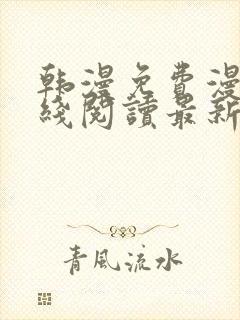 韩漫免費漫
綫閱讀最新
青風流水